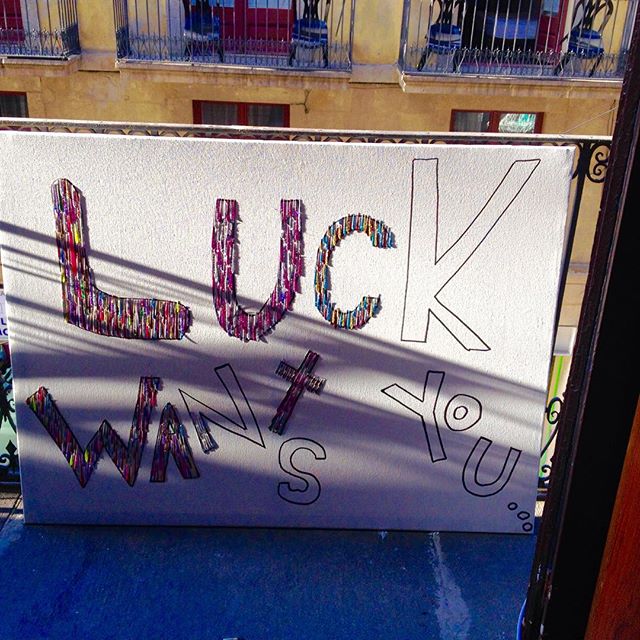 LUCK
WANTS YOU...